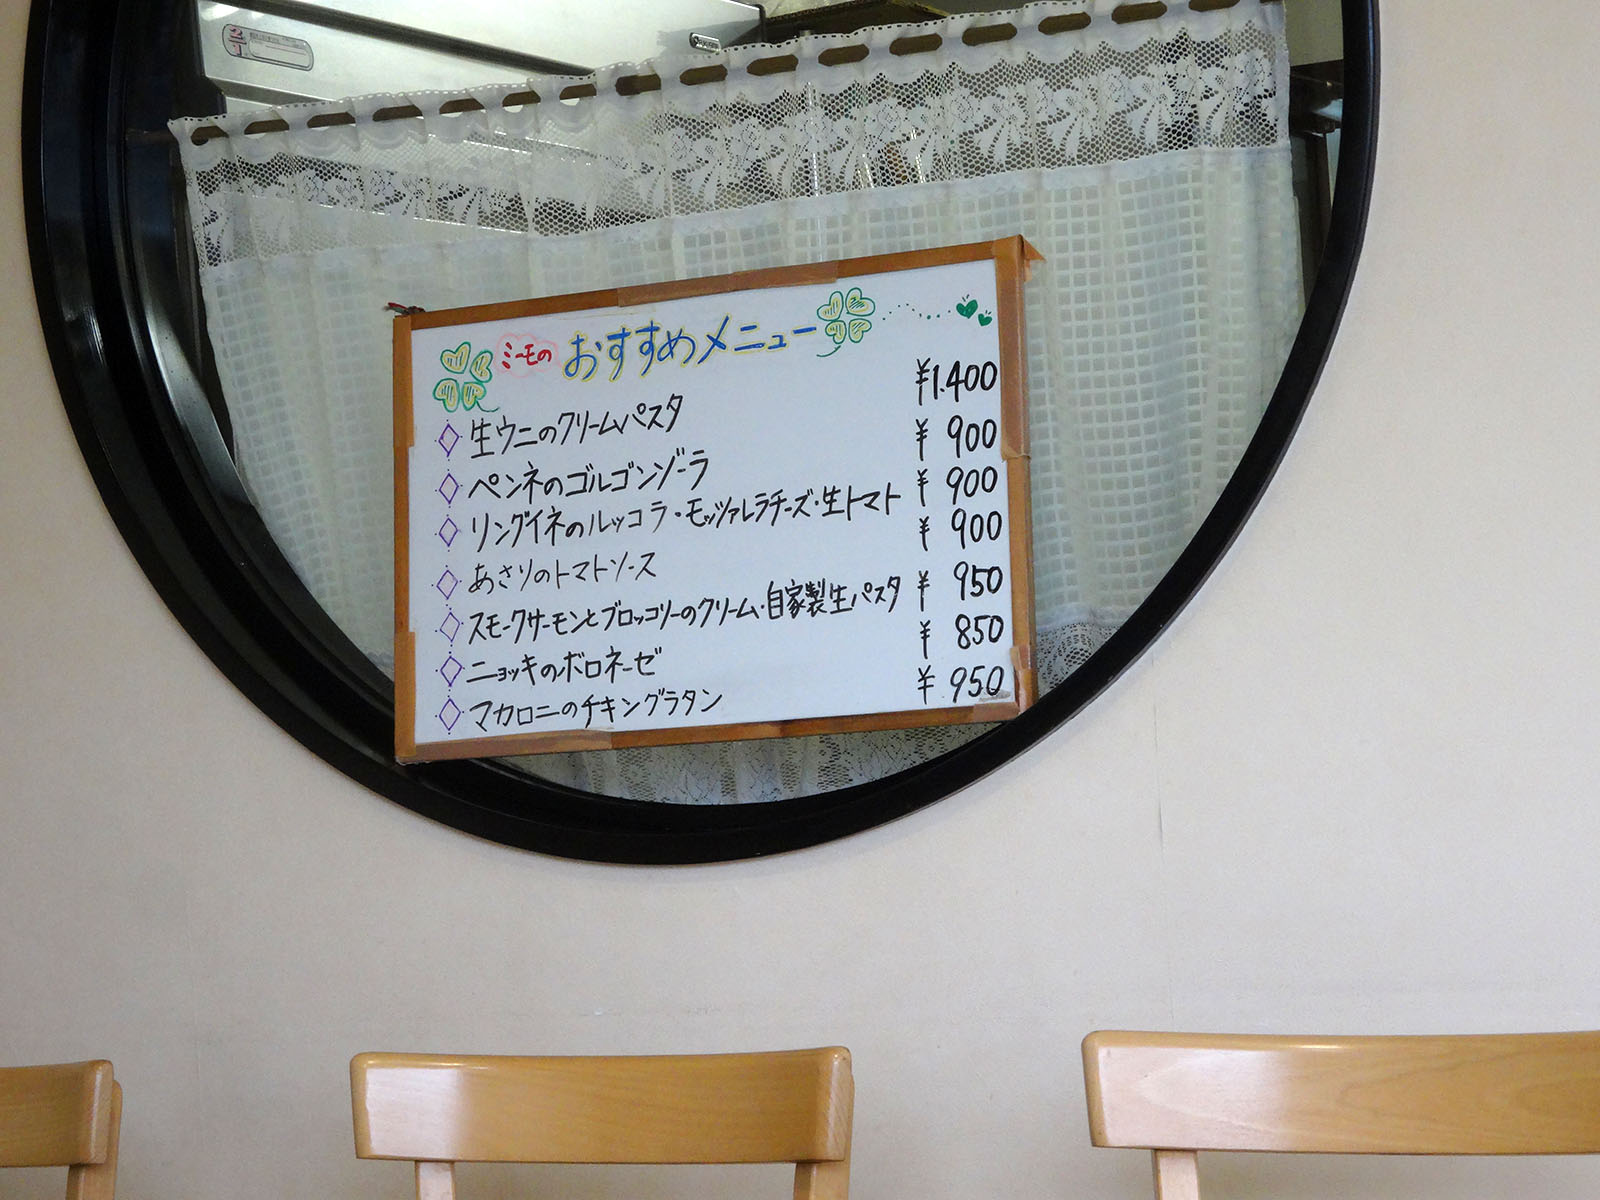 ミーモの おすすめメニュー
生ウニのクリームパスタ ¥1.400
ペンネのゴルゴンゾーラ ¥900
リングイネのルッコラ・モッツァレラチーズ・生トマト ¥900
あさりのトマトソース ¥900
スモークサーモンとブロッコリーのクリーム・自家製生パスタ ¥950
ニョッキのボロネーゼ ¥850
マカロニのチキングラタン ¥950